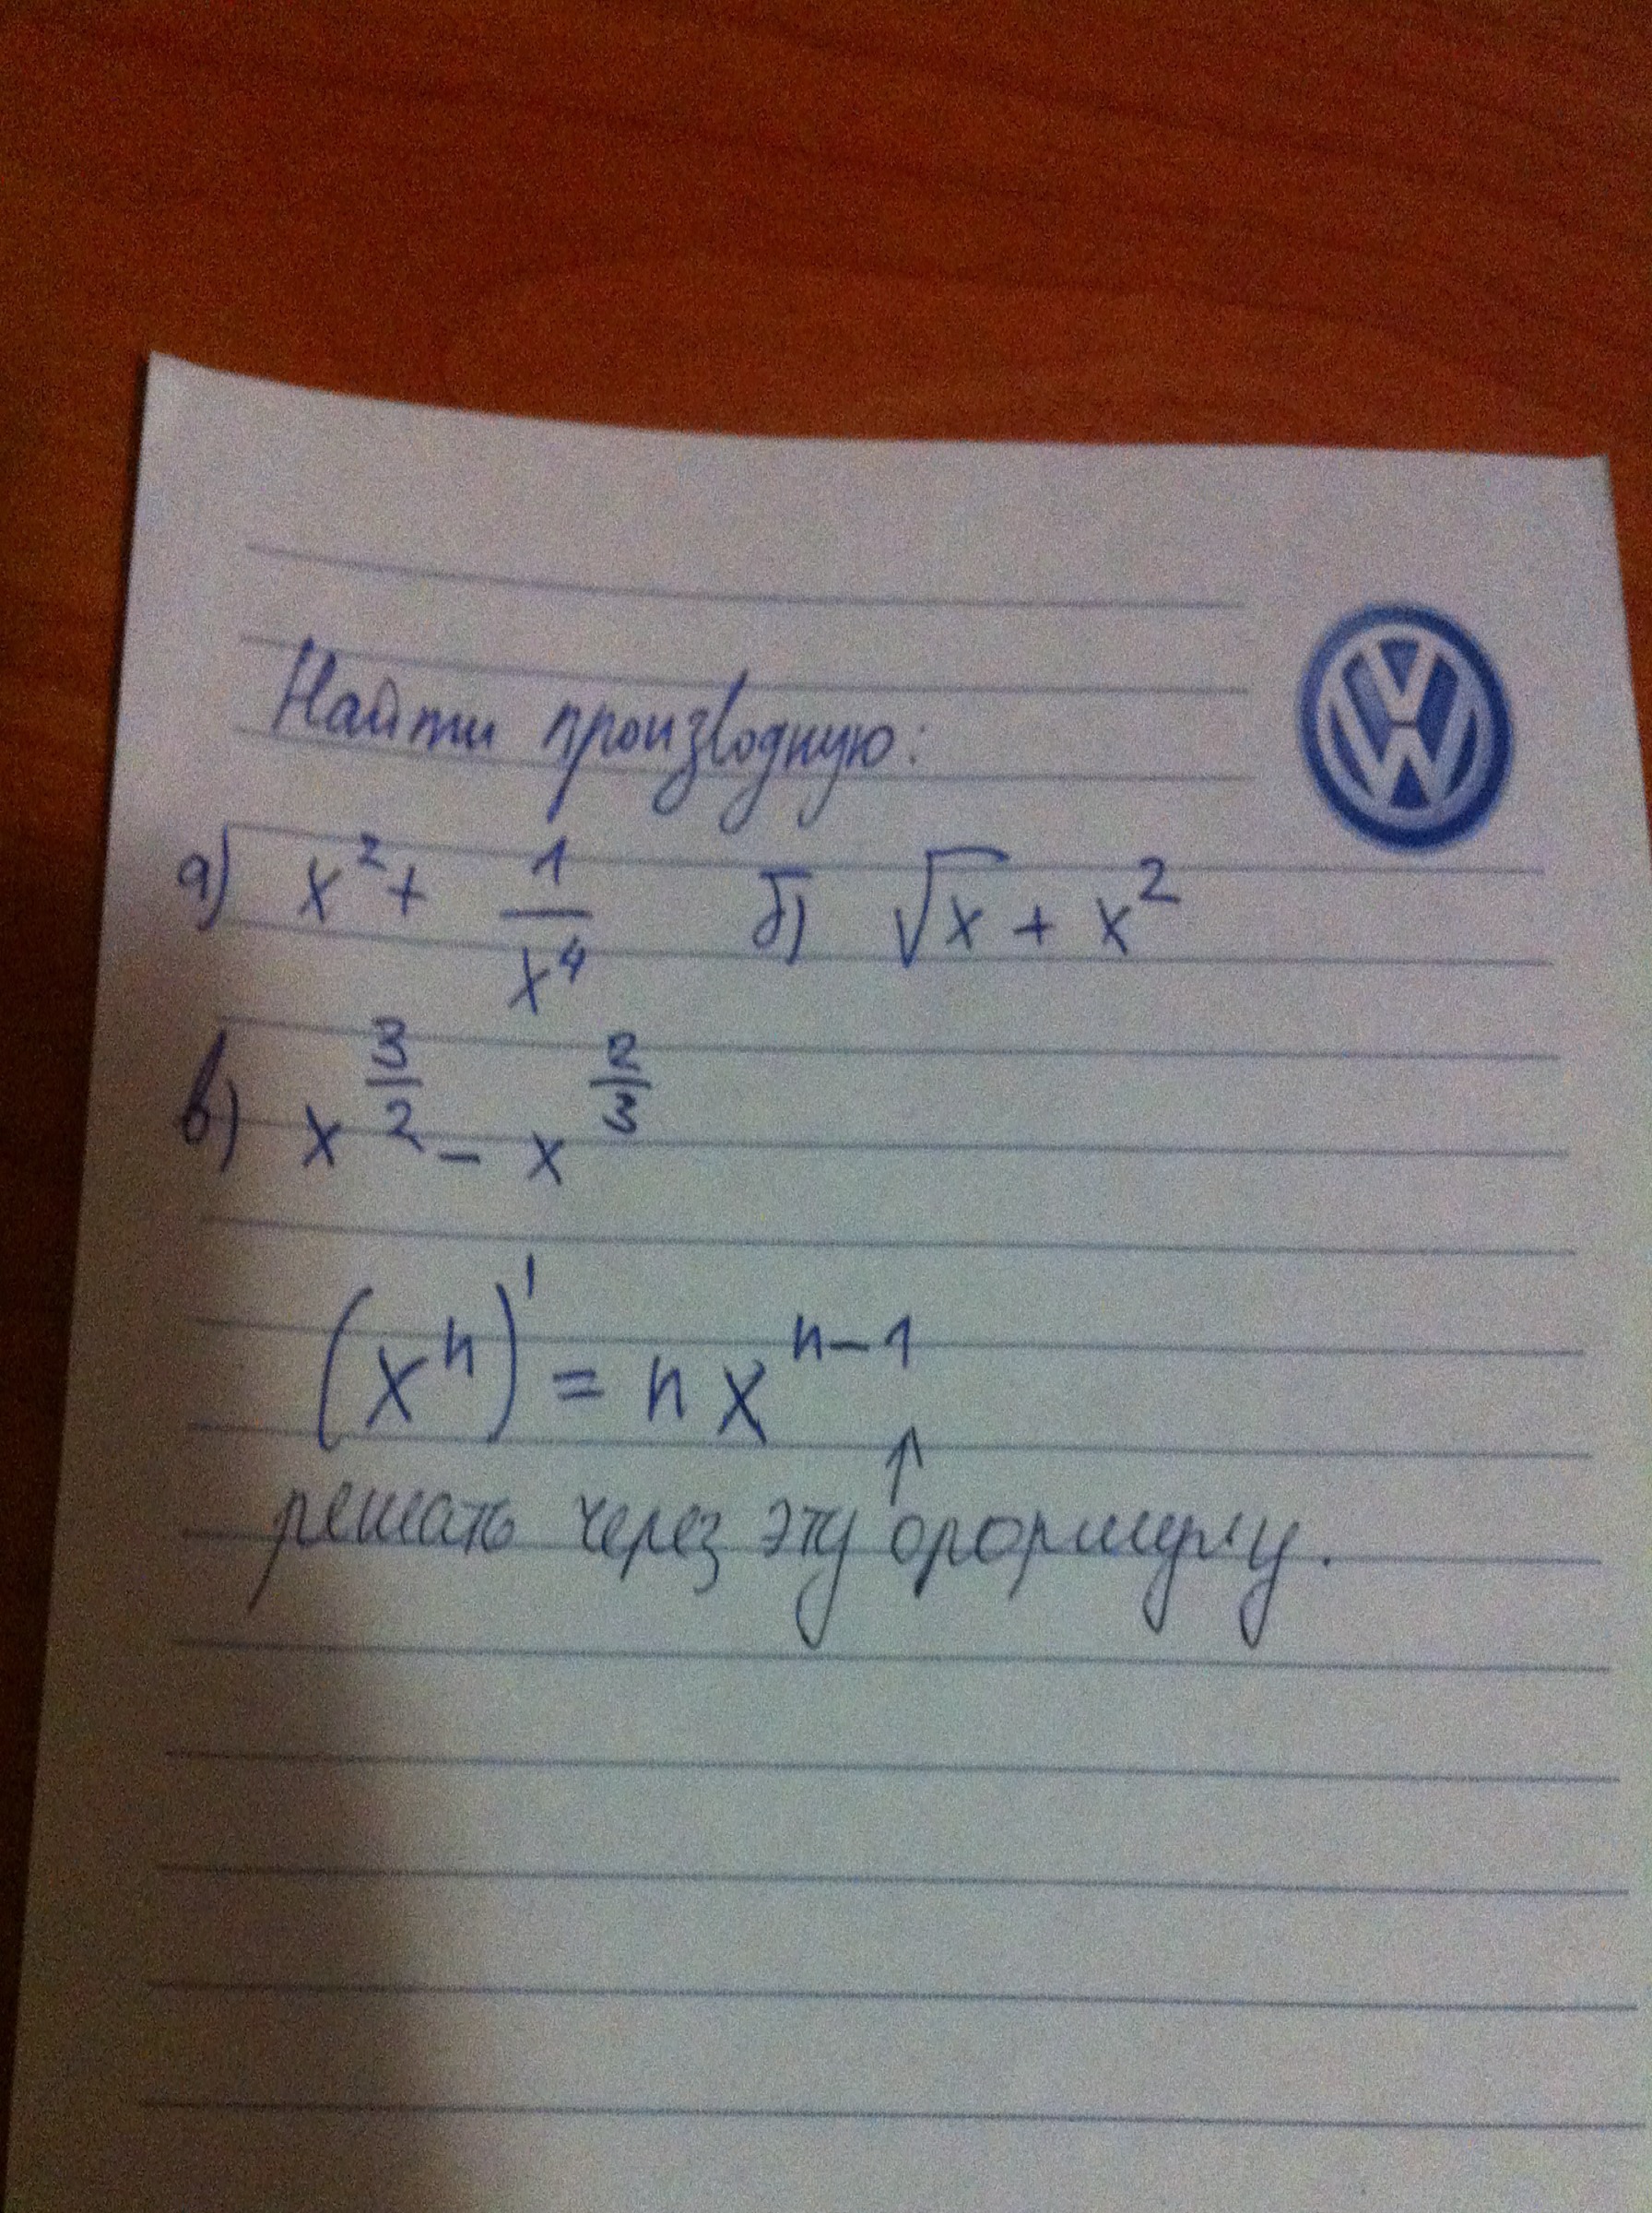 Найти производную:
а) x² + 1/x⁴ б) √x + x²
в) x^(3/2) - x^(2/3)
(xⁿ)' = n xⁿ⁻¹
↑
решать через эту формулу.